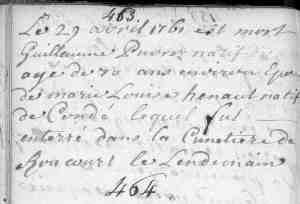 463.
Le 29 avril 1761 est mort
Guillaume natif de
age de 70 ans environ Epoux
de marie Louise henaut natif
de Condé lequel fut
enterré dans la Cimetiere de
le Lendemain
464.